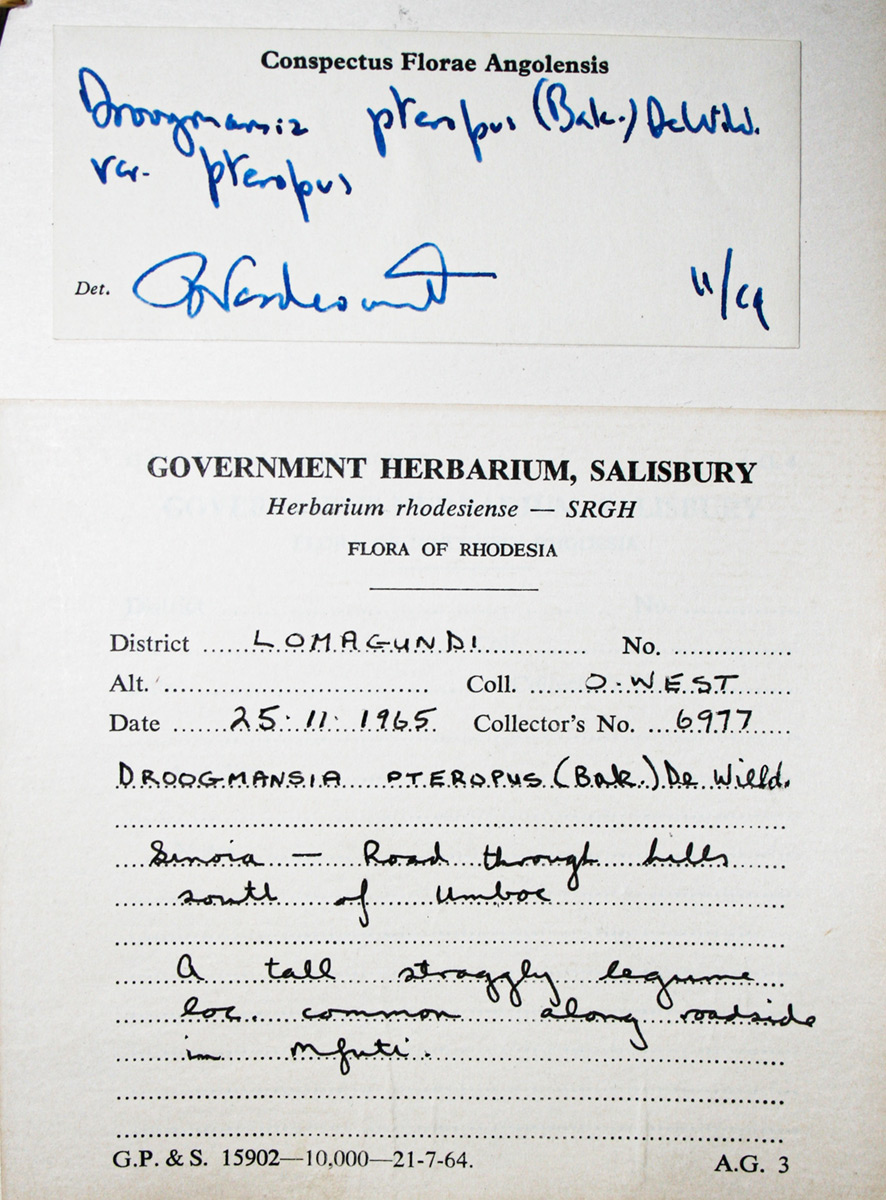 Conspectus Florae Angolensis
Droogmansia pteropus (Bak.) De Wild.
var. pteropus
Det. B Verdcourt 11/69
GOVERNMENT HERBARIUM, SALISBURY
Herbarium rhodesiense — SRGH
FLORA OF RHODESIA
District ...... LOMAGUNDI ............. No. ...............
Alt. .................................. Coll. ...... O. WEST ......
Date ...... 25.11.1965. Collector's No. ... 6977 ......
DROOGMANSIA PTEROPUS (Bak.) De Willd.
Sinoia — Road through hills
south of Umboe
A tall straggly legume
loc. common along roadside
in Mfuti.
G.P. & S. 15902—10,000—21-7-64. A.G. 3